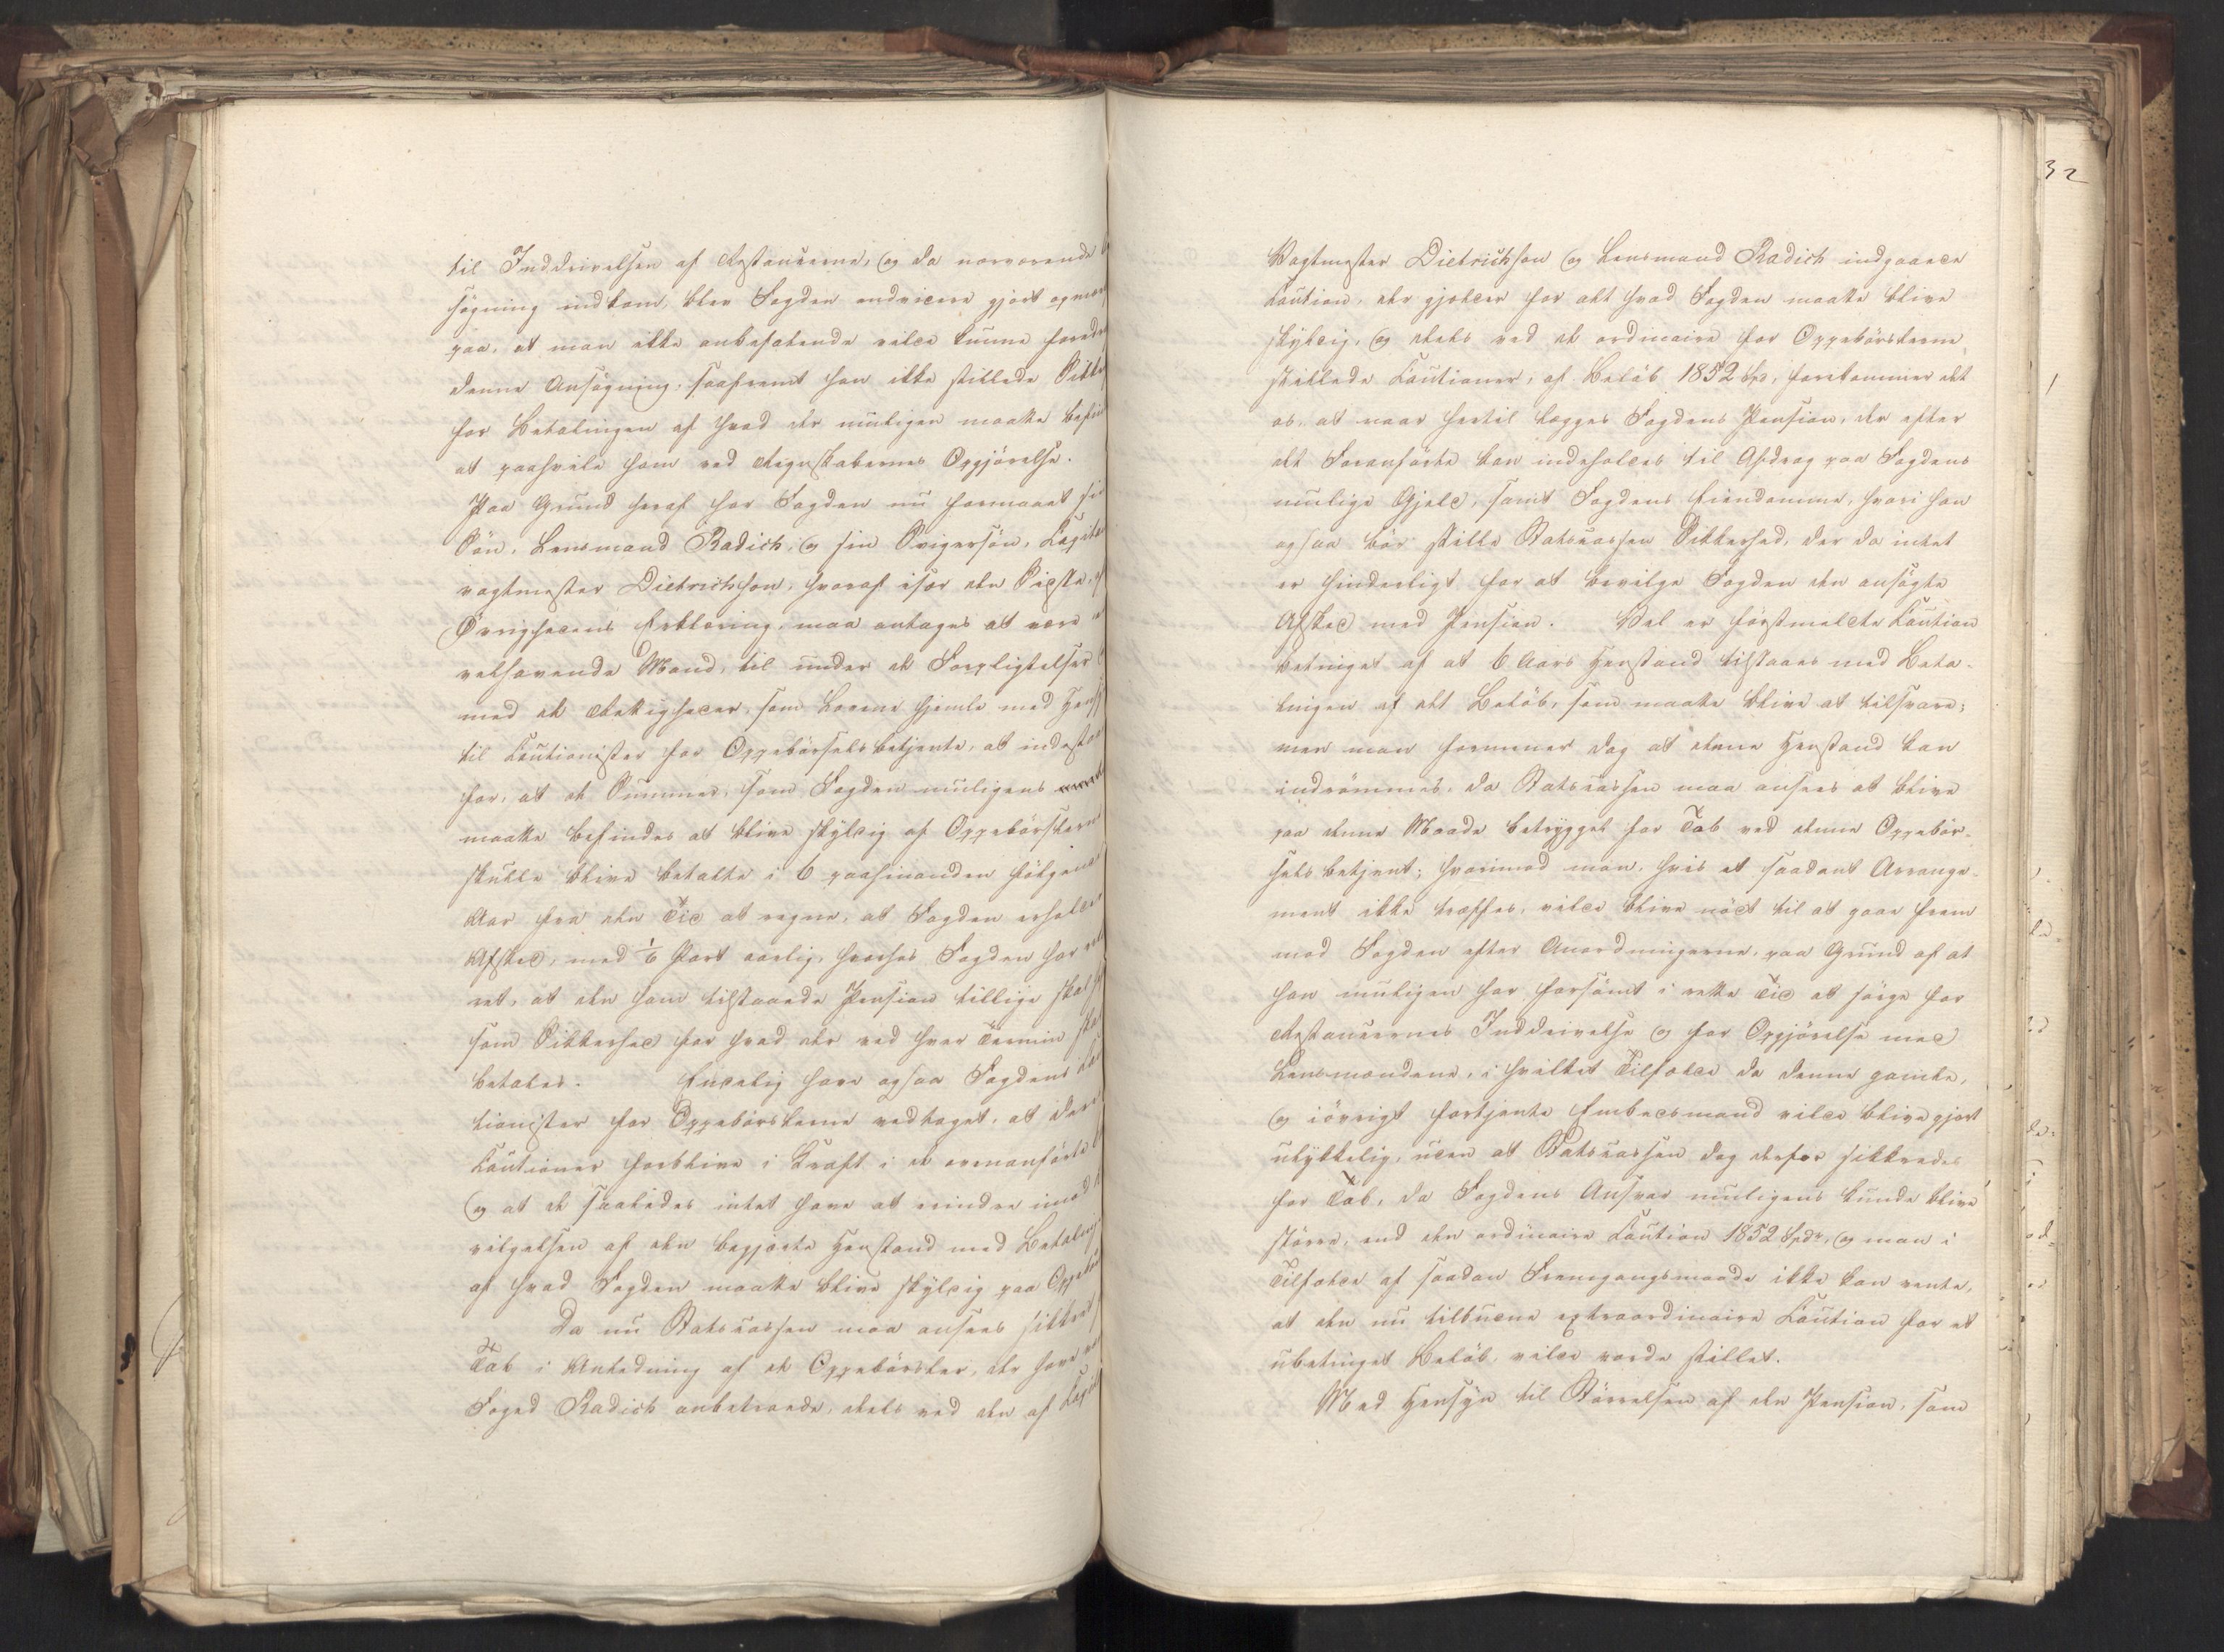 til Inddrivelsen af Restancerne, og da nærværende
søgning indkom, blev Fogden endvidere gjort opmærk
paa, at man ikke anbefalende vilde kunne foredra
denne Ansøgning, saafremt han ikke stillede Sikker
for Betalingen af hvad der muligen maatte befin
at paahvile ham ved Regnskabernes Opgjørelse.
Paa Grund heraf har Fogden nu formaaet sin
Søn, Lensmand Radich, og sin Svigersøn, Kapitel
vagtmester Dietrichson, hvoraf især den Sidste, af
Øvrighedens Erklæring, maa antages at være en
velhavende Mand, til under de Forpligtelser
med de Rettigheder, som Lovene hjemle med Hensyn
til Cautionister for Oppebørselsbetjente, at indestaa
for, at de Summer, som Fogden muligens
maatte befindes at blive skyldig af Oppebørslerne
skulle blive betalte i 6 paahinanden følgende
Aar fra den Tid at regne, at Fogden erholder
Afsked, med 1/6 Part aarlig, hvorhos Fogden har ved
at den ham tilstaaede Pension tillige skal
som Sikkerhed for hvad der ved hver Termin skal
betales. Endelig have ogsaa Fogdens Cau
tionister for Oppebørslerne vedtaget, at deres
Cautioner forblive i Kraft i de ovenanførte
og at de saaledes intet have at erindre imod
vilgelsen af den begjærte Henstand med Betaling
af hvad Fogden maatte blive skyldig paa Oppebør
Da nu Statscassen maa ansees sikkret
Tab i Anledning af de Oppebørsler, der have
Foged Radich anbetroede, deels ved den af Kapitel
32
Vagtmester Dietrichson og Lensmand Radich indgaaede
Caution, der gjælder for alt hvad Fogden maatte blive
skyldig, og deels ved de ordinaire for Oppebørslerne
stillede Cautioner, af Beløb 1852 Spd, forekommer det
os, at naar hertil lægges Fogdens Pension, der efter
det Foranførte kan indeholdes til Afdrag paa Fogdens
mulige Gjeld, samt Fogdens Eiendomme, hvori han
ogsaa bør stille Statscassen Sikkerhed, der da intet
er hinderligt for at bevilge Fogden den ansøgte
Afsked med Pension. Vel er førstmeldte Caution
betinget af at 6 Aars Henstand tilstaaes med Beta-
lingen af det Beløb, som maatte blive at tilsvare;
men man formener dog at denne Henstand kan
indrømmes, da Statscassen maa ansees at blive
paa denne Maade betrygget for Tab ved denne Oppebør-
selsbetjent; hvorimod man, hvis et saadant Arrange-
ment ikke træffes, vilde blive nødt til at gaae frem
mod Fogden efter Anordningerne, paa Grund af at
han muligen har forsømt i rette Tid at sørge for
Restancernes Inddrivelse og for Opgjørelse med
Lensmændene, i hvilket Tilfælde da denne gamle,
og iøvrigt fortjente Embedsmand vilde blive gjort
ulykkelig, uden at Statscassen dog derfor sikkredes
for Tab, da Fogdens Ansvar muligens kunde blive
større, end den ordinaire Caution 1852 Spdr, og man i
Tilfælde af saadan Fremgangsmaade ikke kan vente,
at den nu tilbudne extraordinaire Caution for et
ubetinget Beløb, vilde vorde stillet.
Med Hensyn til Størrelsen af den Pension, som